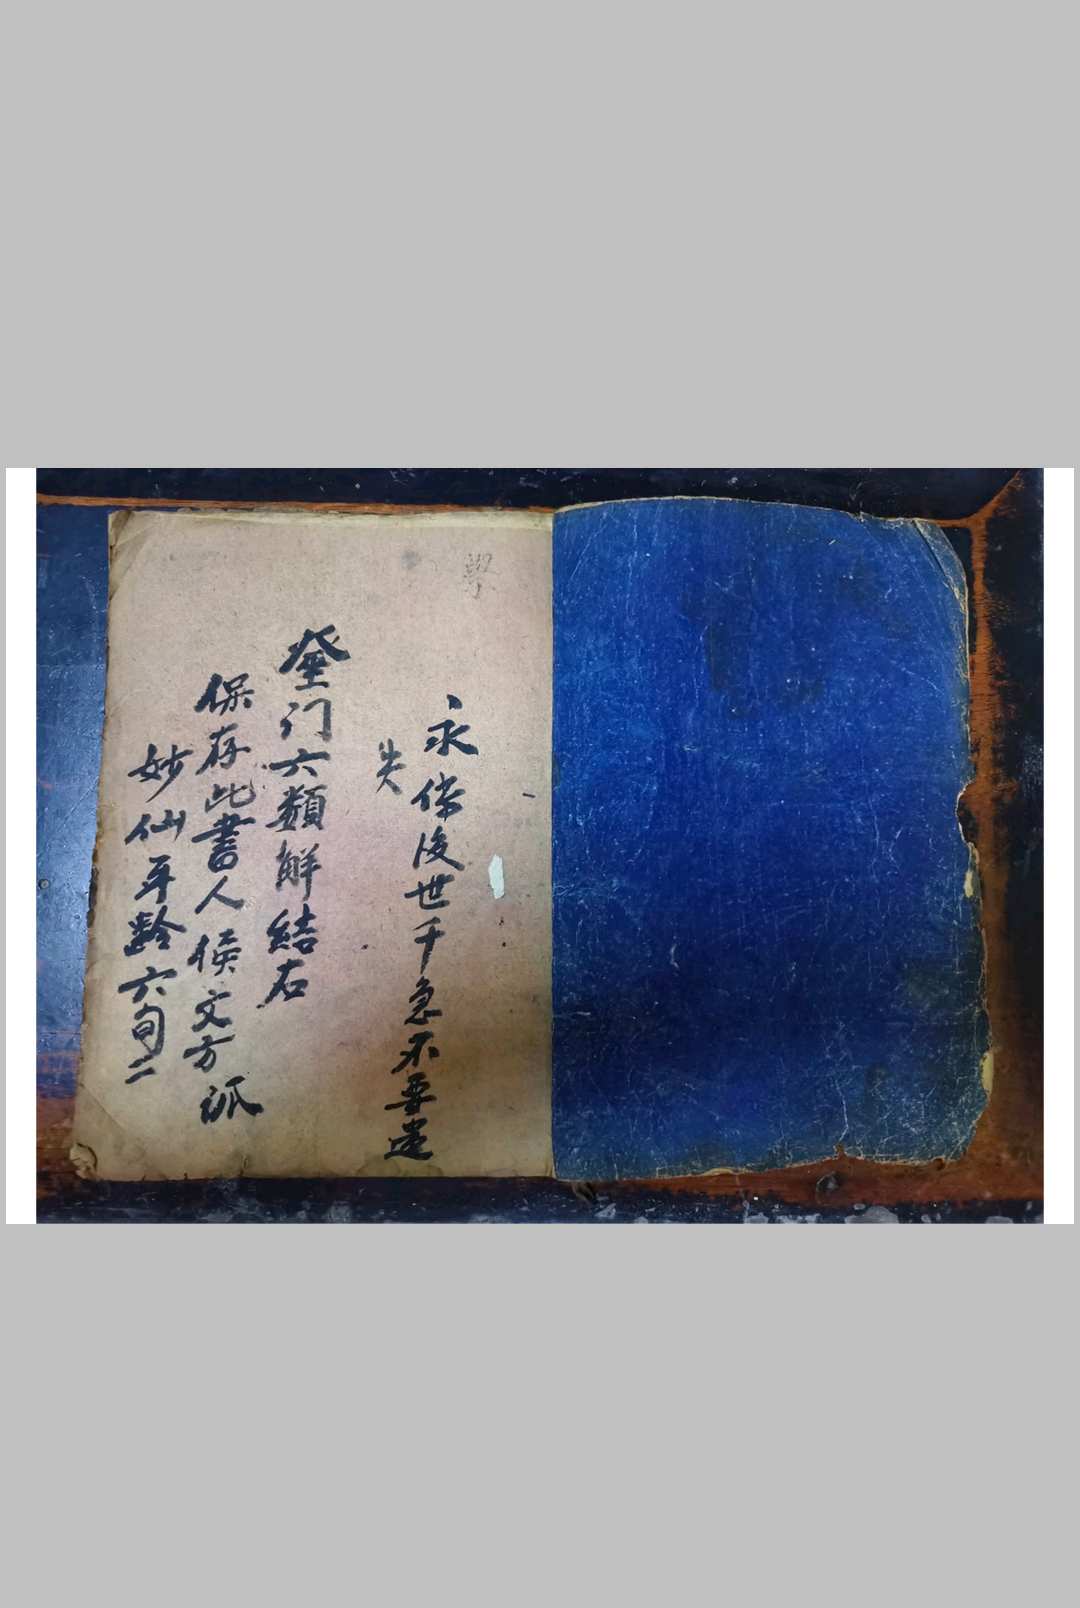 永传後世千急不要遗
失
门六類解結石
保存此書人侯文方
妙仙年龄六旬二